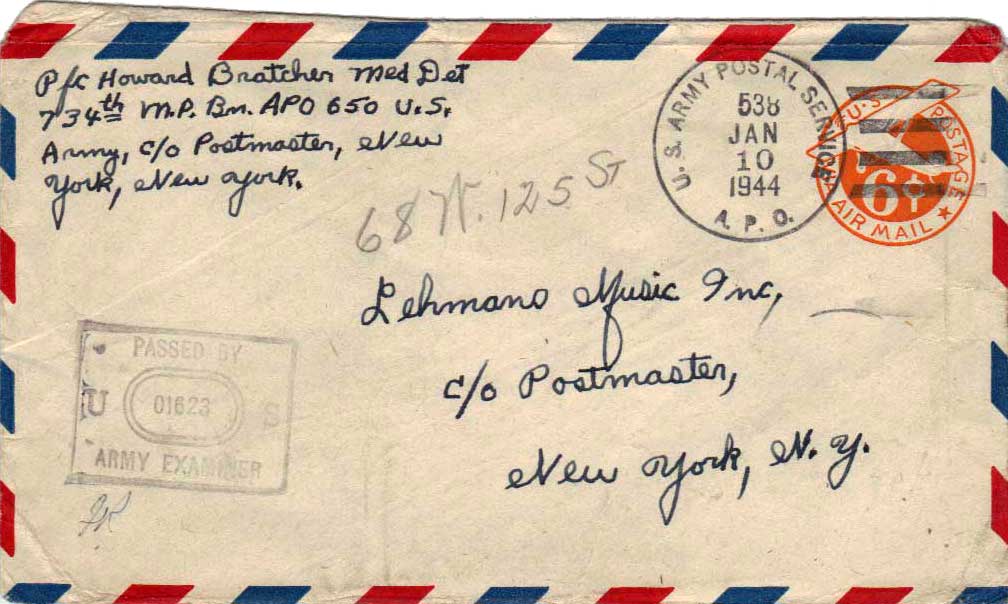 Pfc Howard Bratcher Med Det
734th M.P. Bn. APO 650 U.S.
Army, c/o Postmaster, New
York, New York.
U.S. ARMY POSTAL SERVICE
538
JAN
10
1944
A. P. O.
U.S. POSTAGE
6¢
VIA AIR MAIL
68 W. 125 St
Lehmano Music Inc,
c/o Postmaster,
New York, N. Y.
PASSED BY
U 01623 S
ARMY EXAMINER